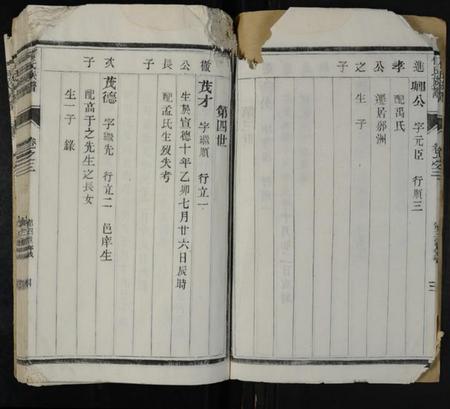 進興公 字元臣 行順三
孝 配禹氏
公 遷居鄧洲
之 生子
子
第四世
徽 茂才 字繼順 行立一
生於宣德十年乙卯七月廿六日辰時
公 配孟氏生歿失考
長
子
次 茂德 字繼先 行立二 邑庠生
配高于之先生之長女
子 生一子 錄
卷之三
卷之三